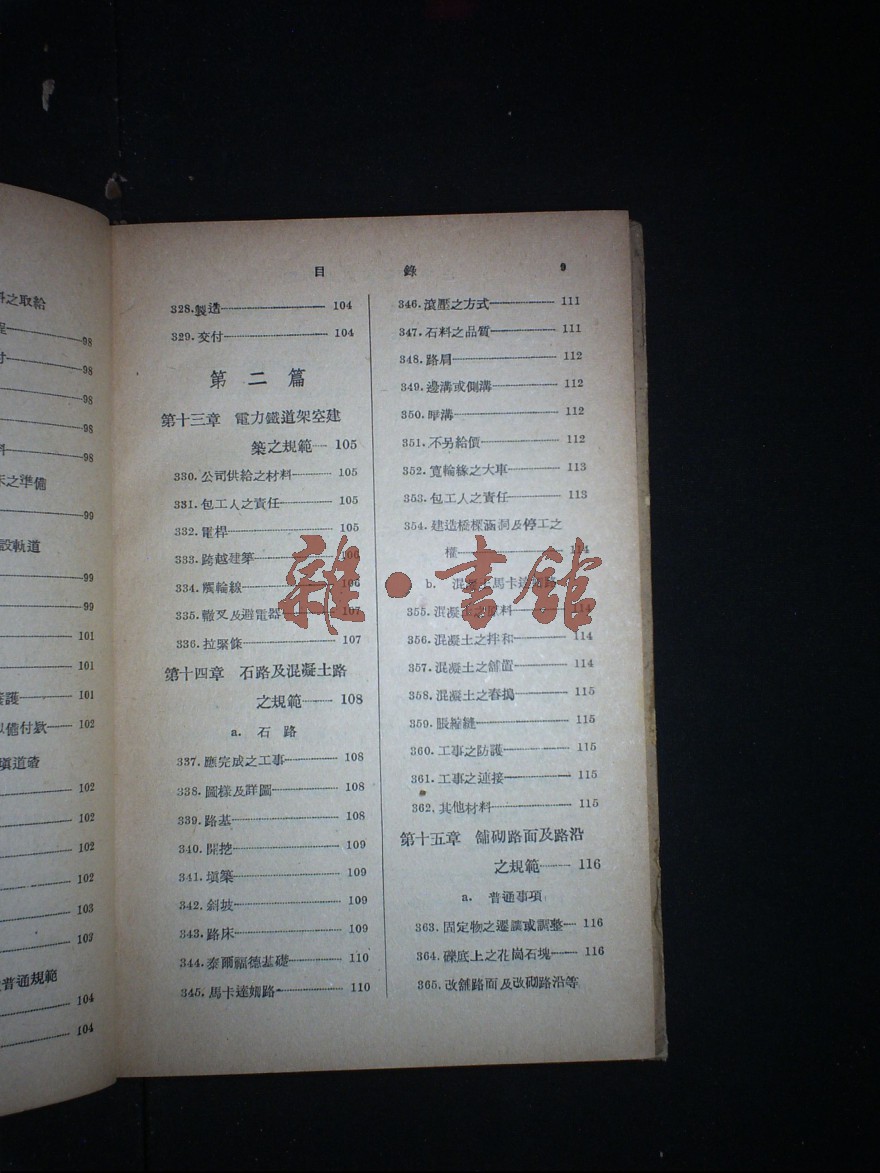 料之取給
98
98
98
98
98
床之準備
99
設軌道
99
99
101
101
101
102
102
102
102
102
103
103
普通規範
104
104
目 錄 9
328.製造 104
329.交付 104
第二篇
第十三章 電力鐵道架空建
築之規範 105
330.公司供給之材料 105
331.包工人之責任 105
332.電桿 105
333.跨越建築 106
334.觸輪線 106
335.轍叉及避電器 107
336.拉緊條 107
第十四章 石路及混凝土路
之規範 108
a. 石路
337.應完成之工事 108
338.圖樣及詳圖 108
339.路基 108
340.開挖 109
341.塡築 109
342.斜坡 109
343.路床 109
344.泰爾福德基礎 110
345.馬卡達姆路 110
346.滾壓之方式 111
347.石料之品質 111
348.路肩 112
349.邊溝或側溝 112
350.暗溝 112
351.不另給價 112
352.寬輪緣之大車 113
353.包工人之責任 113
354.建造橋樑涵洞及停工之
權 114
b. 混凝土馬卡達姆路
355.混凝土之原料 114
356.混凝土之拌和 114
357.混凝土之舖置 114
358.混凝土之舂搗 115
359.脹縮縫 115
360.工事之防護 115
361.工事之連接 115
362.其他材料 115
第十五章 舖砌路面及路沿
之規範 116
a. 普通事項
363.固定物之遷讓或調整 116
364.礫底上之花崗石塊 116
365.改舖路面及改砌路沿等
雜·書館